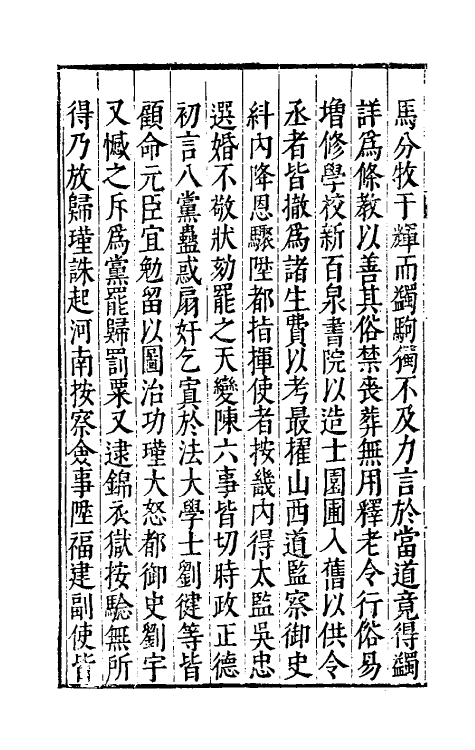 馬分牧于輝而蠲駒獨不及力言於當道竟得蠲
詳爲條教以善其俗禁喪葬無用釋老令行俗易
增修學校新百泉書院以造士園圃入舊以供令
丞者皆撤爲諸生費以考最擢山西道監察御史
糾內降恩驟陞都指揮使者按畿內得太監吳忠
選婚不敬狀劾罷之天變陳六事皆切時政正德
初言八黨蠱惑扇奸乞寘於法大學士劉健等皆
顧命元臣宜勉留以圖治功瑾大怒都御史劉宇
又憾之斥爲黨罷歸罰粟又逮錦衣獄按驗無所
得乃放歸瑾誅起河南按察僉事陞福建副使皆